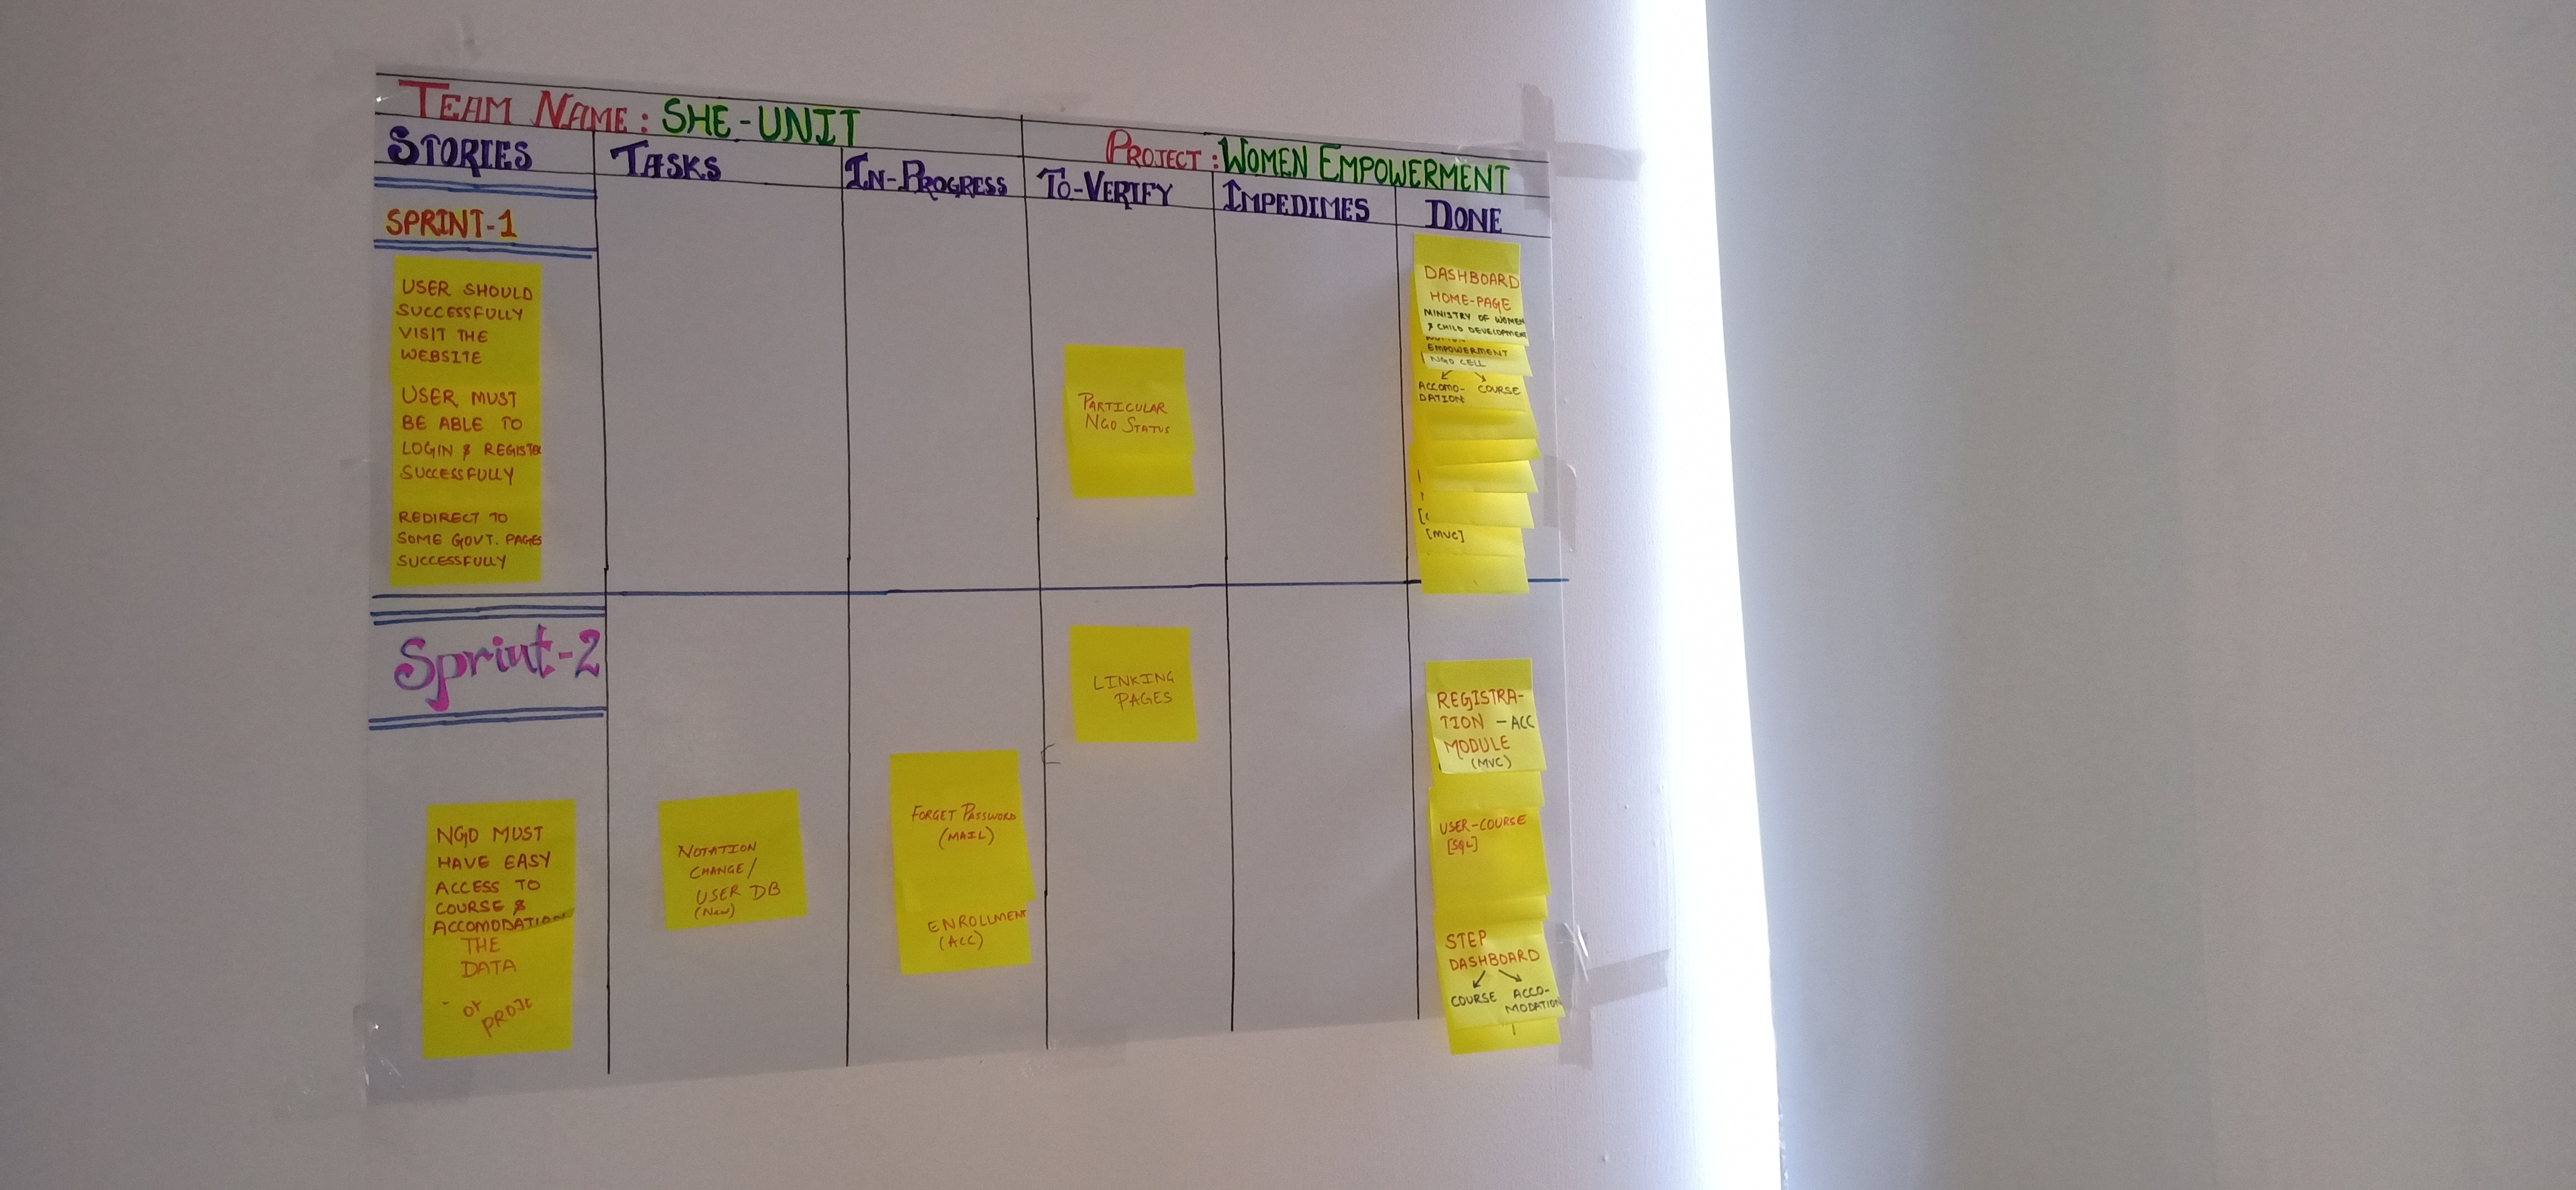 TEAM NAME: SHE-UNIT
PROJECT: WOMEN EMPOWERMENT
STORIES
TASKS
IN-PROGRESS
TO-VERIFY
IMPEDIMES
DONE
SPRINT-1
USER SHOULD
SUCCESSFULLY
VISIT THE
WEBSITE
USER MUST
BE ABLE TO
LOGIN & REGISTER
SUCCESSFULLY
REDIRECT TO
SOME GOVT. PAGES
SUCCESSFULLY
PARTICULAR
NGO STATUS
DASHBOARD
HOME-PAGE
MINISTRY OF WOMEN
& CHILD DEVELOPMENT
EMPOWERMENT
NGO CELL
ACCOMO- COURSE
DATION
[MVC]
Sprint-2
NGO MUST
HAVE EASY
ACCESS TO
COURSE &
ACCOMODATION
THE
DATA
NOTATION
CHANGE/
USER DB
(New)
FORGET PASSWORD
(MAIL)
ENROLLMENT
(ACC)
LINKING
PAGES
REGISTRA-
TION - ACC
MODULE
(MVC)
USER-COURSE
[SQL]
STEP
DASHBOARD
COURSE ACCO-
MODATION